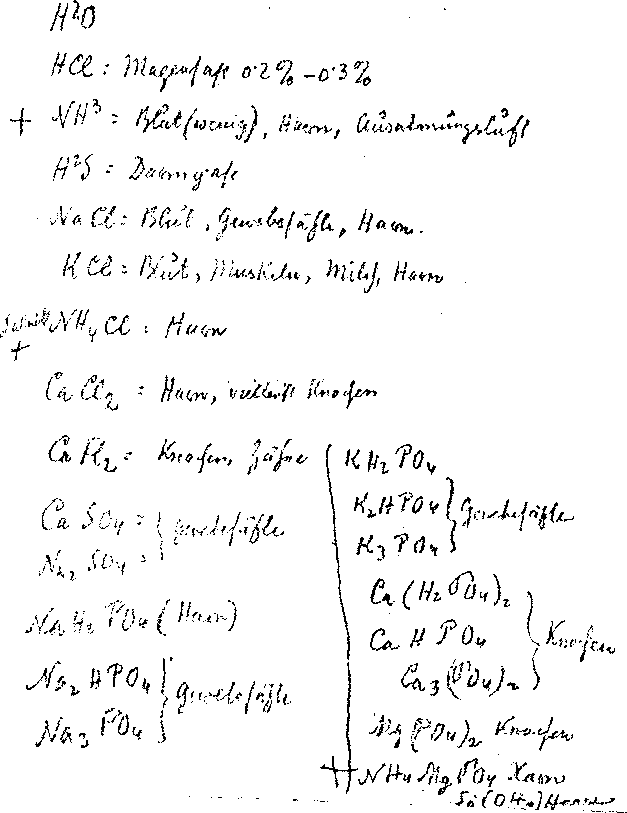 H²O
HCl : Magensaft 0.2% – 0.3%
+ NH³ = Blut (wenig), Harn, Ausatmungsluft
H²S = Darmgase
NaCl = Blut, Gewebssäfte, Harn.
KCl = Blut, Muskeln, Milch, Harn
+ NH₄Cl : Harn
CaCl₂ : Harn, vielleicht Knochen
CaFl₂ = Knochen, Zähne
CaSO₄ = } Gewebssäfte
Na₂SO₄ =
NaH₂PO₄ (Harn)
Na₂HPO₄ } Gewebssäfte
Na₃PO₄
KH₂PO₄
K₂HPO₄ } Gewebssäfte
K₃PO₄
Ca(H₂PO₄)₂
CaHPO₄ } Knochen
Ca₃(PO₄)₂
Mg(PO₄)₂ Knochen
+ NH₄MgPO₄ Harn